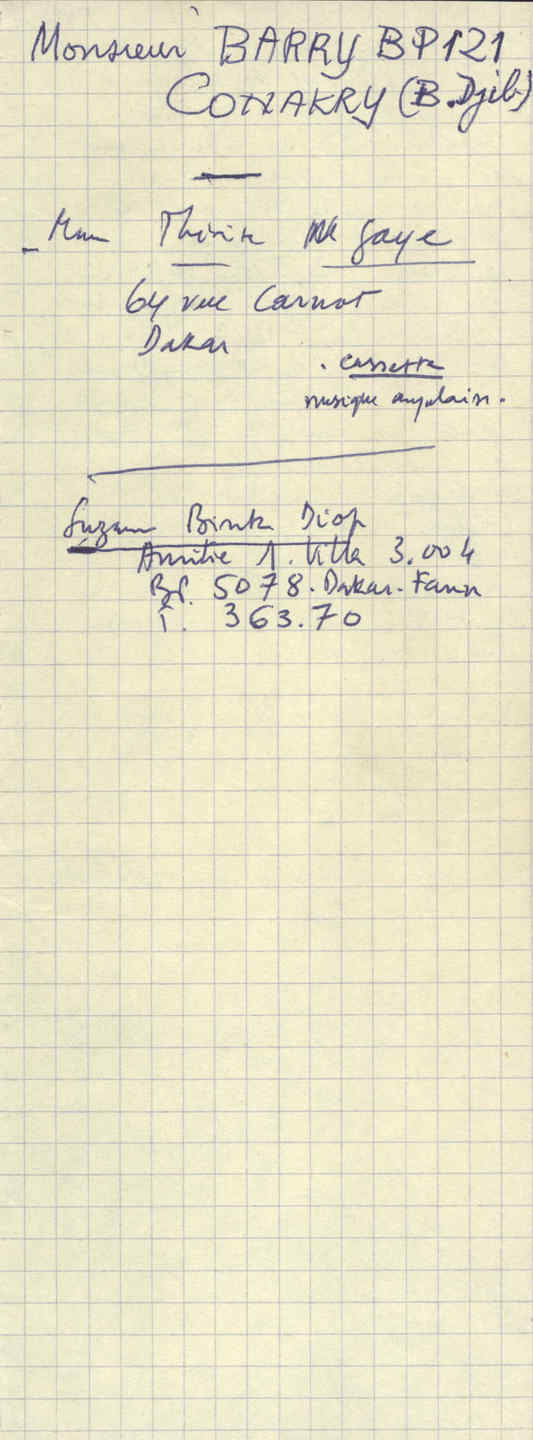 Monsieur BARRY BP121
CONAKRY (B.Djib.)
- Mme Thérèse Mb Gaye
64 rue Carnot
Dakar
. cassette
musique angolaise.
Suzanne Binta Diop
Amitié 1. Villa 3.004
BP. 5078. Dakar-Fann
T. 363.70